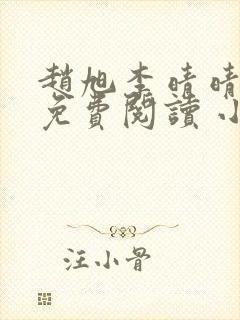 趙旭李晴晴
免費閱讀小
汪小骨